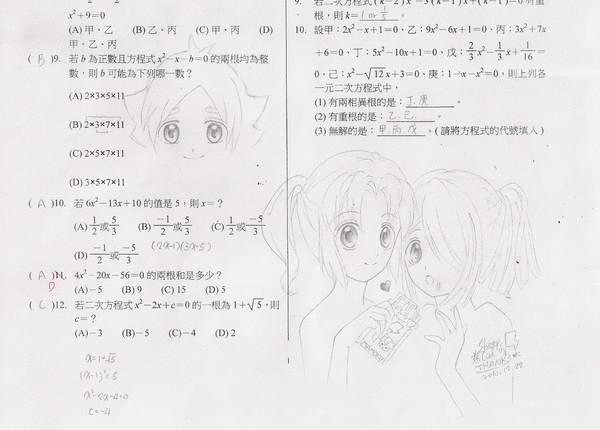 x²+9=0
(A) 甲、乙 (B) 乙、丙 (C) 甲、丙 (D)
甲、乙、丙
( B )9. 若 b 為正數且方程式 x²−x−b=0 的兩根均為整
數，則 b 可能為下列哪一數？
(A) 2×3×5×11
(B) 2×3×7×11
(C) 2×5×7×11
(D) 3×5×7×11
( A )10. 若 6x²−13x+10 的值是 5，則 x=？
(A) 1/2 或 5/3 (B) −1/2 或 5/3 (C) 1/2 或 −5/3
(D) −1/2 或 −5/3
(2x-1)(3x-5)
( A )11. 4x²−20x−56=0 的兩根和是多少？
D
(A) −5 (B) 9 (C) 15 (D) 5
( C )12. 若二次方程式 x²−2x+c=0 的一根為 1+√5，則
c=？
(A) −3 (B) −5 (C) −4 (D) 2
x=1+√5
(x-1)²=5
x²-2x-4=0
c=-4
9. 若二次方程式 (k−2)x²−3(k−1)x+(k−1)=0 有重
根，則 k= 1 or 1/5 。
10. 設甲：2x²−x+1=0、乙：9x²−6x+1=0、丙：3x²+7x
+6=0、丁：5x²−10x+1=0、戊：2/3x²−1/3x+1/16
=0、己：x²−√12x+3=0、庚：1−x−x²=0，則上列各
一元二次方程式中，
(1) 有兩相異根的是：丁.庚 。
(2) 有重根的是：乙.己 。
(3) 無解的是：甲.丙.戊 。( 請將方程式的代號填入 )
THANKS